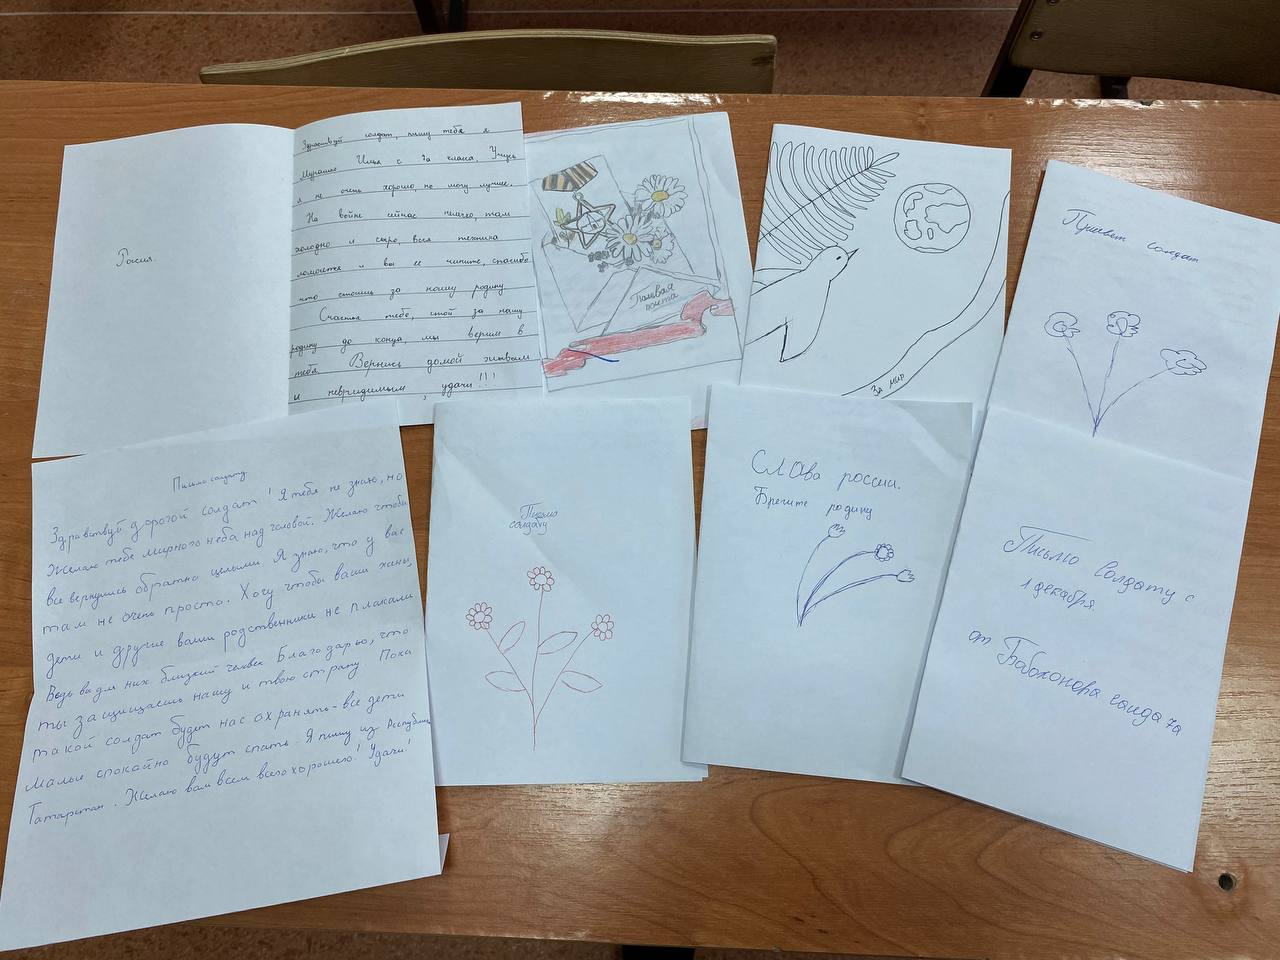 Россия.
Здраствуй солдат, пишу тебя я
Мурашко Илья с 7а класа. Учусь
я не очень хорошо но могу лучше.
На войне сейчас нелегко, там
холодно и сыро, вся техника
ломается и вы её чините, спасибо
что стоишь за нашу родину.
Счастья тебе, стой за нашу
родину до конца, мы верим в
тебя. Вернись домой живым
и невридимым, удачи!!!
Полевая
почта
За мир
Привет солдат
Письмо солдату
Здравствуй дорогой солдат! Я тебя не знаю, но
желаю тебе мирного неба над головой. Желаю чтобы
все вернулись обратно целыми. Я знаю, что у вас
там не очень просто. Хочу чтобы ваши жены,
дети и другие ваши родственники не плакали
Ведь вы для них близкий человек Благодарю, что
ты защищаешь нашу и твою страну Пока
такой солдат будет нас охранять - все дети
малые спокойно будут спать. Я пишу из Республики
Татарстан. Желаю вам всем всего хорошего! Удачи!
Письмо
солдату
СЛАва россии.
Брегите родину
Письмо Солдату с
1 декабря.
от Бобохонова саида 7а